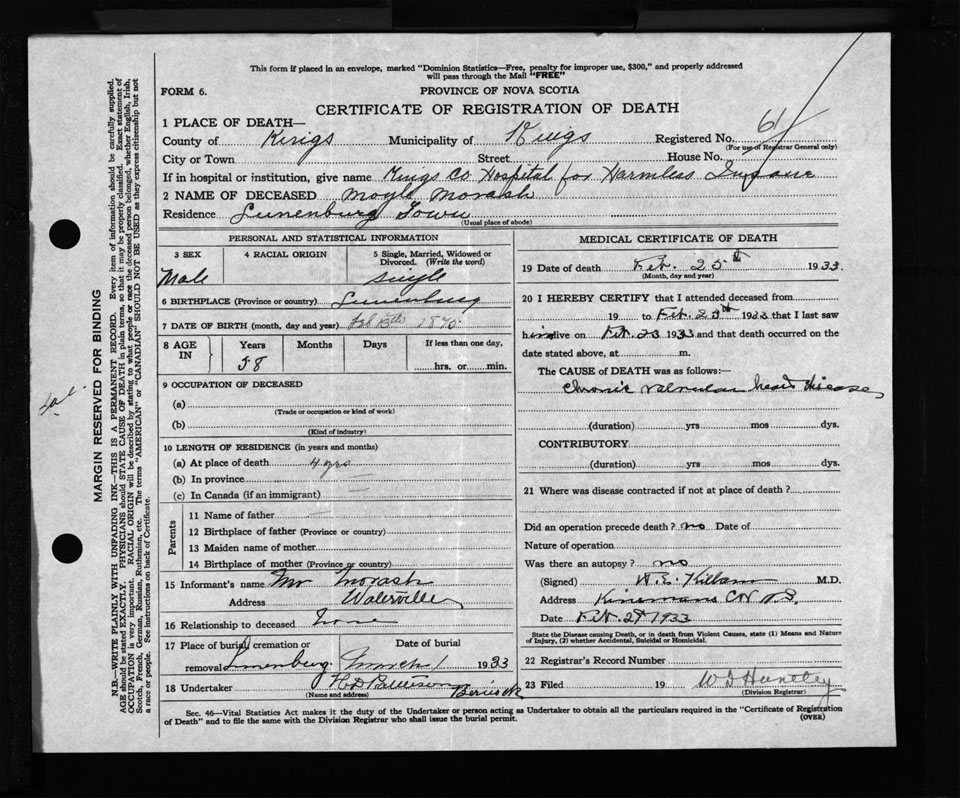 This form if placed in an envelope, marked "Dominion Statistics—Free, penalty for improper use, $300," and properly addressed
will pass through the Mail "FREE"
FORM 6.
PROVINCE OF NOVA SCOTIA
CERTIFICATE OF REGISTRATION OF DEATH
1 PLACE OF DEATH—
County of Kings Municipality of Kings Registered No. 61
(For use of Registrar General only)
City or Town Street House No.
If in hospital or institution, give name Kings Co Hospital for Harmless Insane
2 NAME OF DECEASED Moyle Morash
Residence Lunenburg Town
(Usual place of abode)
PERSONAL AND STATISTICAL INFORMATION
3 SEX 4 RACIAL ORIGIN 5 Single, Married, Widowed or
Divorced. (Write the word)
Male single
6 BIRTHPLACE (Province or country) Lunenburg
7 DATE OF BIRTH (month, day and year) Feb 13th 1875
8 AGE IN Years Months Days If less than one day,
58 hrs. or min.
9 OCCUPATION OF DECEASED
(a)
(Trade or occupation or kind of work)
(b)
(Kind of industry)
10 LENGTH OF RESIDENCE (in years and months)
(a) At place of death 4 yrs
(b) In province
(c) In Canada (if an immigrant)
Parents
11 Name of father
12 Birthplace of father (Province or country)
13 Maiden name of mother
14 Birthplace of mother (Province or country)
15 Informant's name Mr Morash
Address Waterville
16 Relationship to deceased None
17 Place of burial, cremation or Date of burial
removal Lunenburg March 1 1933
18 Undertaker H D Patterson Berwick
(Name and address)
MEDICAL CERTIFICATE OF DEATH
19 Date of death Feb. 25th 1933.
(Month, day and year)
20 I HEREBY CERTIFY that I attended deceased from
19 to Feb. 23th 1933 that I last saw
him alive on Feb. 23 1933 and that death occurred on the
date stated above, at m.
The CAUSE of DEATH was as follows:
Chronic valvular heart disease
(duration) yrs mos dys.
CONTRIBUTORY
(duration) yrs mos dys.
21 Where was disease contracted if not at place of death?
Did an operation precede death? no Date of
Nature of operation
Was there an autopsy? no
(Signed) W. E. Killam M.D.
Address N.S.
Date Feb. 27 1933
State the Disease causing Death, or in death from Violent Causes, state (1) Means and Nature
of Injury, (2) whether Accidental, Suicidal or Homicidal.
22 Registrar's Record Number
23 Filed 19 W D Huntley
(Division Registrar)
Sec. 46—Vital Statistics Act makes it the duty of the Undertaker or person acting as Undertaker to obtain all the particulars required in the "Certificate of Registration
of Death" and to file the same with the Division Registrar who shall issue the burial permit.
(OVER)
MARGIN RESERVED FOR BINDING
N.B.—WRITE PLAINLY WITH UNFADING INK—THIS IS A PERMANENT RECORD. Every item of information should be carefully supplied.
AGE should be stated EXACTLY. PHYSICIANS should STATE CAUSE OF DEATH in plain terms, so that it may be properly classified. Exact statement of
OCCUPATION is very important. RACIAL ORIGIN will be described by stating to what people or race the deceased person belonged, whether English, Irish,
Scotch, French, German, Russian, Ruthenian, etc. The terms "AMERICAN" or "CANADIAN" SHOULD NOT BE USED as they express citizenship but not
a race or people. See instructions on back of Certificate.